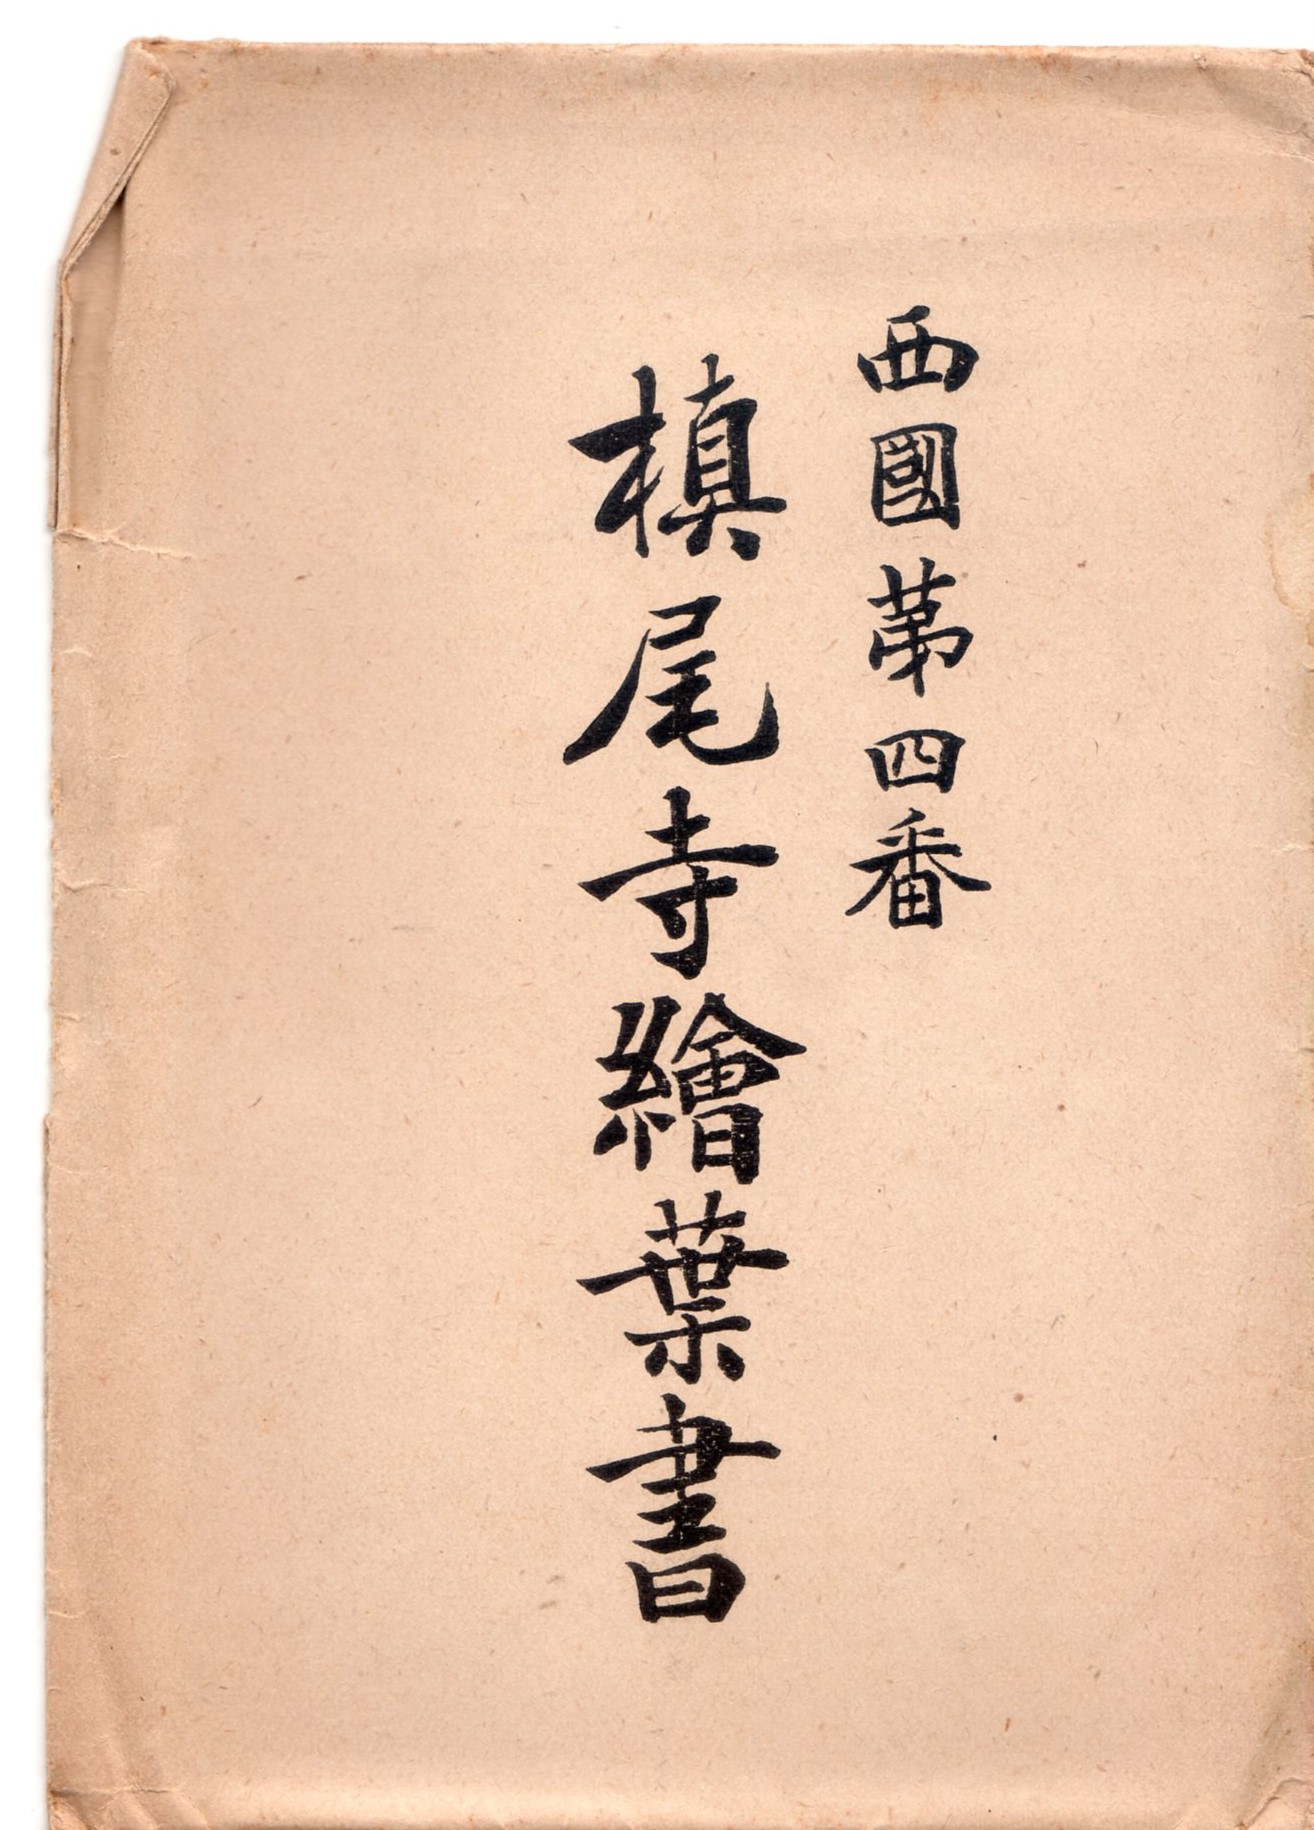 西國第四番
槙尾寺繪葉書